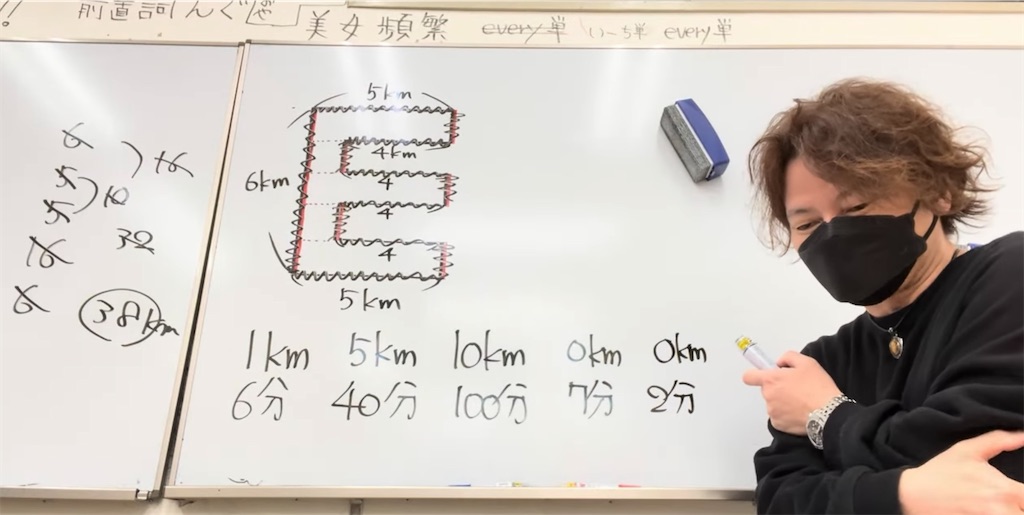 !! 前置詞んぐ
美女頻繁 every単 いーち単 every単
5km
4km
6km
4
4
4
5km
38km
1km 5km 10km 0km 0km
6分 40分 100分 7分 2分